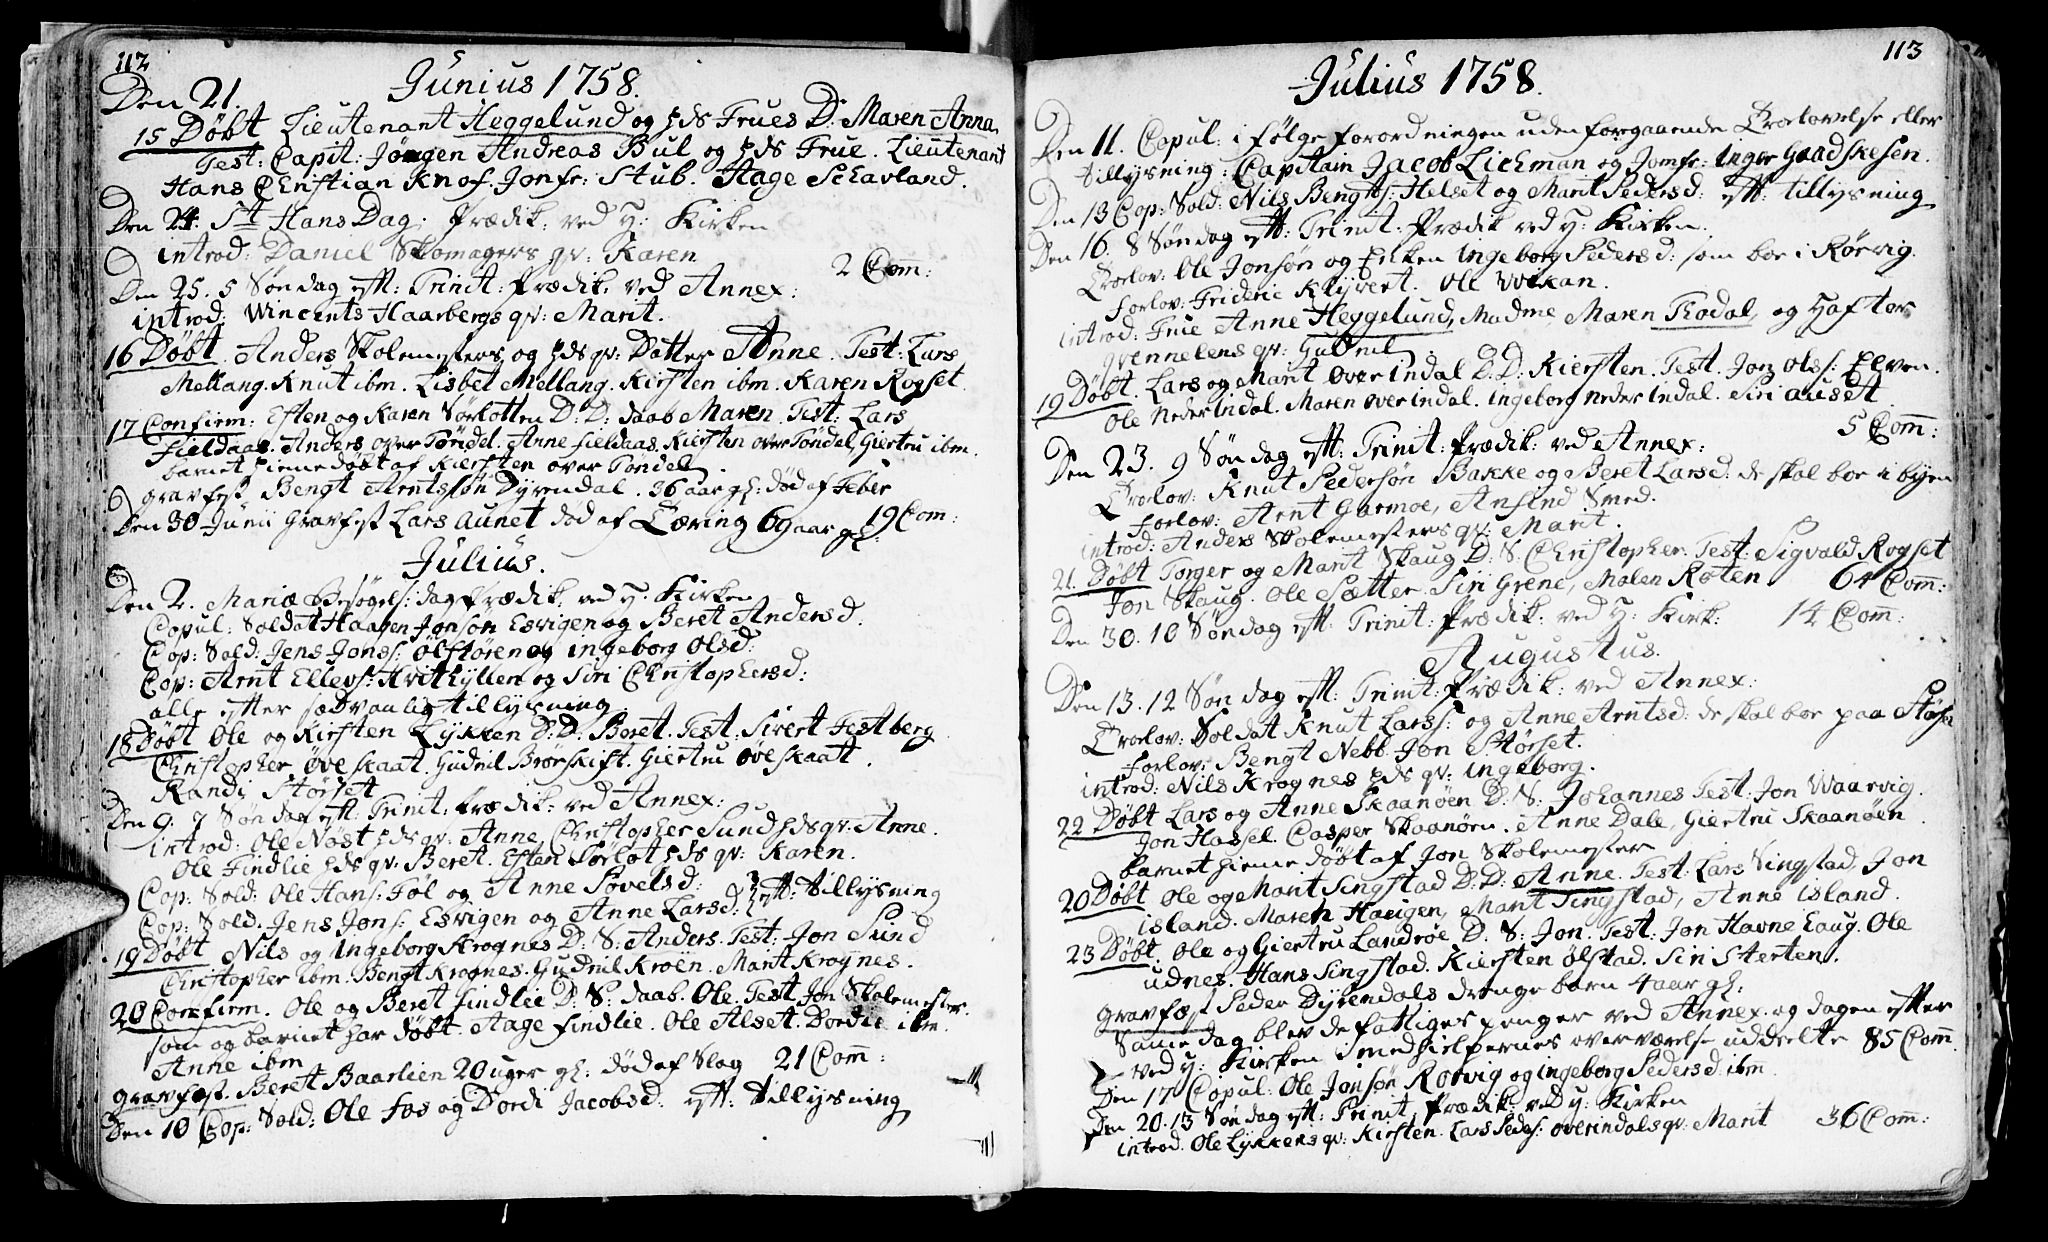 112
Junius 1758.
Den 21.
15 Døbt Lieutenant Heggelund og hds Frues D. Maren Anna
Test: Capit: Jørgen Andreas Bul og hds Frue. Lieutenant
Hans Christian Knof. Jomfr: Stub. Aage Schavland.
Den 24. St Hans Dag. Prædik: ved H: Kirken
introd: Daniel Skomagers qv: Karen
2 Com:
Den 25. 5 Søndag eft: Trinit: Prædik: ved Annex:
introd: Wincents Haarbergs qv: Marit.
16 Døbt. Anders Skolemesters og hds qv: Datter Anne. Test: Lars
Mellang. Knut ibm. Lisbet Mellang. Kirsten ibm. Karen Rogset.
17 Confirm: Esten og Karen Sørlotten D: D: daab Maren Test: Lars
Fieldaas. Anders over Tøndel. Anne Fieldaas. Kiersten over Tøndel, Giertru ibm.
barnet hiemedøbt af Kiersten over Tøndel
gravfest Bengt Arntssøn Dyrendal. 36 aar gl: død af Feber
19 Com:
Den 30 Junii Gravfest Lars Aunet død af Tæring 69 aar gl:
Julius.
Den 2. Mariæ Besøgels: dag Prædik: ved H: Kirken
Copul: Soldat Haagen Jonsøn Esvigen og Beret Andersd.
Cop: Sold: Jens Jonss: Ølstøren og ingeborg Olsd:
Cop: Arnt Ellevs: Hvithyllen og Siri Christophersd:
alle efter sædvanlig tillysning.
18 Døbt Ole og Kirsten Lykken D: D. Beret. Test: Sivert Festberg
Christopher Øveskaat. Gudnil Brørskift. Giertru Øveskaat.
Randi Størset
Den 9. 7 Søndag eft: Trinit: Prædik: ved Annex:
introd: Ole Nøst hds qv: Anne Christopher Sund hds qv: Anne.
Ole Findlie hds qv: Beret. Esten Sørlot hds qv: Karen.
Cop: Sold: Ole Hans: Føl og Anne Sovelsd:
Cop: Sold. Jens Jons: Esvigen og Anne Larsd: eft: tillysning
19 Døbt Nils og Ingeborg Krognes D: S: Anders. Test: Jon Sund
Christopher ibm. Bengt Krognes. Gudnil Kroën. Marit Krognes.
20 Confirm. Ole og Beret Findlie D. S: daab. Ole. Test Jon Skolemester.
som og barnet har døbt. Aage Findlie. Ole Alset. Dordie ibm.
Anne ibm
gravfest. Beret Baarlien 20 uger gl: død af Slag 21 Com:
Den 10 Cop: Sold: Ole Fos og Dordi Jacobsd: eft: tillysning
113
Julius 1758.
Den 11. Copul: i følge forordningen uden foregaaende Trolovelse eller
tillysning: Capitain Jacob Lickman og Jomfr: Inger Gaadskesen.
Den 13 Cop: Sold: Nils Bengts: Helset og Marit Pedersd: eft: tillysning
Den 16. 8 Søndag eft: Trinit: Prædik ved H: Kirken
Trolov: Ole Jonsøn og Enken Ingeborg Pedersd: som boe i Rørvig.
Forlov: Frideric Klyvert. Ole Wekan.
introd: Frue Anne Heggelund, Madme Maren Rodal, og Hafter
Gvennelens qv: Gudnil
19 Døbt. Lars og Marit Over Indal D. D: Kiersten. Test. Jon Olss: Elven.
Ole Neder Indal. Maren over indal. Ingeborg neder Indal. Siri Auset.
5 Com:
Den 23. 9 Søndag eft: Trinit: Prædik: ved Annex:
Trolov: Knut Pedersøn Bakke og Beret Larsd: de skal boe i byen
Forlov: Arnt Garmoe, Amund Smed.
introd: Anders Skolemesters qv: Marit.
21. Døbt Torger og Marit Skaug D: S. Christopher. Test: Sigvald Rogset
Jon Skaug. Ole Sætter. Siri Grene, Malen Roten 64 Com:
Den 30. 10 Søndag eft: Trinit: Prædik: ved H: Kirk: 14 Com:
Augustus.
Den 13. 12 Søndag eft: Trinit: Prædik: ved Annex:
Trolov: Soldat Knut Larss: og Anne Arntsd: de skal boe paa
Forlov: Bengt Nebb. Jon Størset.
introd: Nils Krognes hds qv: Ingeborg.
22 Døbt Lars og Anne Skaanøen D: S: Johannes Test: Jon Waarvig.
Jon Hassel. Casper Skaanøen. Anne Dale, Giertru Skaanøen
barnet hieme døbt af Jon Skolemester
20 Døbt Ole og Marit Singstad D: D: Anne. Test: Lars Singstad, Jon
island. Maren Haugen, Marit Singstad, Anne island.
23 Døbt. Ole og Giertru Landrøe D. S: Jon. Test: Jon Havne haug. Ole
udnes. Hans Singstad. Kiersten Ølstad. Siri Sterten.
gravfæst Peder Dyrendals drengebarn 4 aar gl:
Samme dag blev de fattiges penger ved Annex. og dagen efter
ved H: Kirken i medhielpernes overværelse uddeelte 85 Com
Den 17 Copul: Ole Jonsøn Rørvig og ingeborg Pedersd: ibm.
Den 20. 13 Søndag eft: Trinit: Prædik: ved H: Kirken
introd. Ole Lykkens qv: Kirsten. Lars Peders: overindals qv: Marit 36 Com: